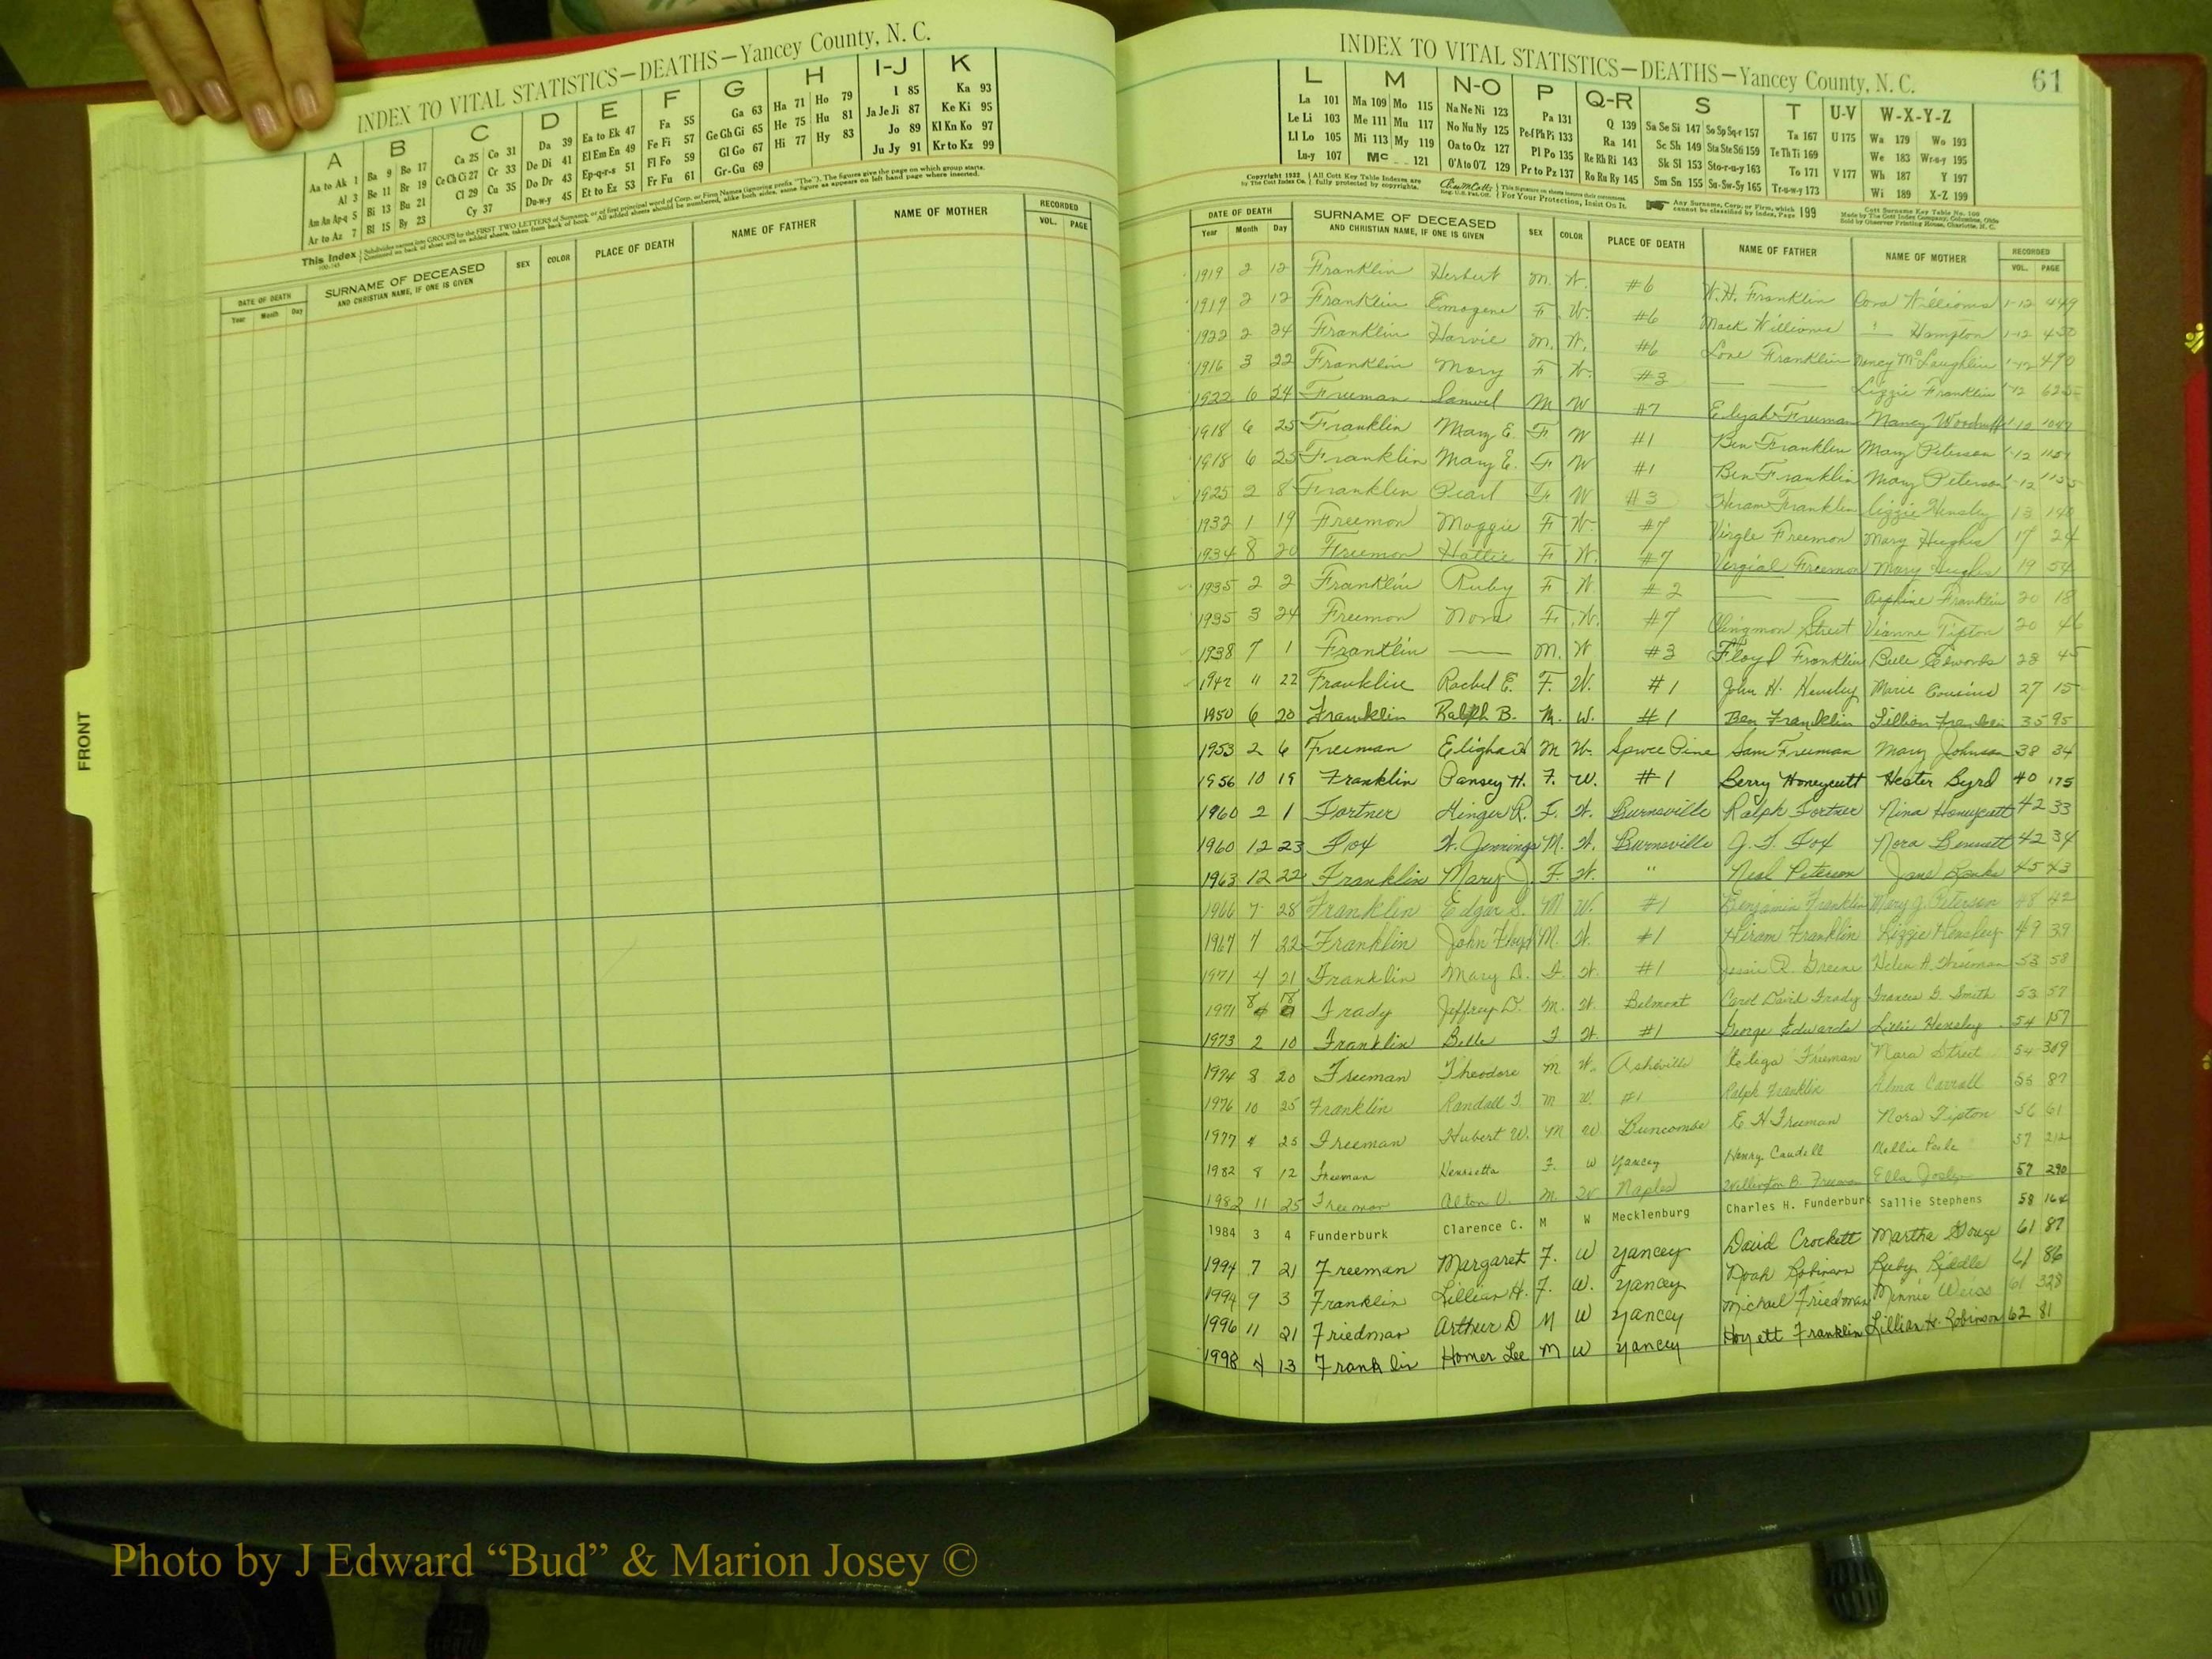 INDEX TO VITAL STATISTICS—DEATHS—Yancey County, N. C.
A B C D E F G H I-J K
Aa to Ak 1 Ba 9 Bo 17 Ca 25 Co 31 Da 39 Ea to Ek 47 Fa 55 Ga 63 Ha 71 Ho 79 I 85 Ka 93
Al 3 Be 11 Br 19 Ce Ch Ci 27 Cr 33 De Di 41 El Em En 49 Fe Fi 57 Ge Gh Gi 65 He 75 Hu 81 Ja Je Ji 87 Ke Ki 95
Am An Ap-q 5 Bi 13 Bu 21 Cl 29 Cu 35 Do Dr 43 Ep-q-r-s 51 Fl Fo 59 Gl Go 67 Hi 77 Hy 83 Jo 89 Kl Kn Ko 97
Ar to Az 7 Bl 15 By 23 Cy 37 Du-w-y 45 Et to Ez 53 Fr Fu 61 Gr-Gu 69 Ju Jy 91 Kr to Kz 99
This Index
DATE OF DEATH SURNAME OF DECEASED SEX COLOR PLACE OF DEATH NAME OF FATHER NAME OF MOTHER RECORDED
Year Month Day AND CHRISTIAN NAME, IF ONE IS GIVEN VOL. PAGE
FRONT
INDEX TO VITAL STATISTICS—DEATHS—Yancey County, N. C. 61
L M N-O P Q-R S T U-V W-X-Y-Z
La 101 Ma 109 Mo 115 Na Ne Ni 123 Pa 131 Q 139 Sa Se Si 147 So Sp Sq-r 157 Ta 167 U 175 Wa 179 Wo 193
Le Li 103 Me 111 Mu 117 No Nu Ny 125 Pe-f Ph Pi 133 Ra 141 Sc Sh 149 Sta Ste Sti 159 Te Th Ti 169 We 183 Wr-u-y 195
Ll Lo 105 Mi 113 My 119 Oa to Oz 127 Pl Po 135 Re Rh Ri 143 Sk Sl 153 Sto-r-u-y 163 To 171 V 177 Wh 187 Y 197
Lu-y 107 Mc 121 O'A to O'Z 129 Pr to Pz 137 Ro Ru Ry 145 Sm Sn 155 Su-Sw-Sy 165 Tr-u-w-y 173 Wi 189 X-Z 199
Copyright 1932 All Cott Key Table Indexes are fully protected by copyrights. For Your Protection, Insist On It. Any Surname, Corp. or Firm, which cannot be classified by Index, Page 199
DATE OF DEATH SURNAME OF DECEASED SEX COLOR PLACE OF DEATH NAME OF FATHER NAME OF MOTHER RECORDED
Year Month Day AND CHRISTIAN NAME, IF ONE IS GIVEN VOL. PAGE
1919 2 12 Franklin Herbert M. W. #6 W.H. Franklin Cora Williams 1-12 449
1919 2 12 Franklin Emogene F W. #6 Mack Williams " Hampton 1-12 450
1922 2 24 Franklin Harvie M. W. #6 Love Franklin Nancy McLaughlin 1-12 490
1916 3 22 Franklin Mary F W. #3 — — Lizzie Franklin 1-12 625
1922 6 24 Freeman Samuel M W #7 Elijah Freeman Nancy Woodruff 1-12
1918 6 25 Franklin Mary E. F W #1 Ben Franklin Mary Peterson 1-12
1918 6 25 Franklin Mary E. F W #1 Ben Franklin Mary Peterson 1-12
1925 2 8 Franklin Pearl F W #3 Hiram Franklin Lizzie Hensley 13 140
1932 1 19 Freemon Maggie F W. #7 Virgle Freemon Mary Hughes 17 24
1934 8 20 Freemon Hattie F W. #7 Virgial Freemon Mary Hughes 19 54
1935 2 2 Franklin Ruby F W #2 — — Franklin 20 18
1935 3 24 Freemon Nora F. W. #7 Clingmon Street Vianna Tipton 20 46
1938 7 1 Franklin — M. W #3 Floyd Franklin Belle Edwards 23 45
1942 11 22 Franklin Rachel E. F. W. #1 John H. Hensley Marie Cousins 27 15
1950 6 20 Franklin Ralph B. M. W. #1 Ben Franklin Lillian Franklin 35 95
1953 2 6 Freeman Eligha M W. Spruce Pine Sam Freeman Mary Johnson 38 34
1956 10 19 Franklin Pansey H. F. W. #1 Berry Honeycutt Hester Byrd 40 175
1960 2 1 Fortner Ginger R. F. W. Burnsville Ralph Fortner Nina Honeycutt 42 33
1960 12 23 Fox W. Jennings M. W. Burnsville J. T. Fox Nora Bennett 42 34
1963 12 22 Franklin Mary J. F. W. " Neal Peterson Jane Banks 45 43
1966 7 28 Franklin Edgar S. M W. #1 Benjamin Franklin Mary J. Peterson 48 42
1967 7 22 Franklin John Floyd M. W. #1 Hiram Franklin Lizzie Hensley 49 39
1971 4 21 Franklin Mary D. F. W. #1 Jessie R. Greene Helen A. Freeman 53 58
1971 8 18 Frady Jeffrey D. M. W. Belmont Carol David Frady Frances G. Smith 53 57
1973 2 10 Franklin Belle F W. #1 George Edwards Lillie Hensley 54 157
1974 8 20 Freeman Theodore M W. Asheville Freeman Nora Street 54 309
1976 10 25 Franklin Randall M W. #1 Ralph Franklin Alma Carroll 55 87
1977 4 25 Freeman Hubert W. M W. Buncombe E H Freeman Nora Tipton 56 61
1982 8 12 Freeman Henrietta F. W Yancey Henry Caudell Nellie 57 212
1982 11 25 Freeman Alton V. M. W Naples Wellington B. Freeman Ella Joslyn 57 290
1984 3 4 Funderburk Clarence C. M W Mecklenburg Charles H. Funderburk Sallie Stephens 58 164
1994 7 21 Freeman Margaret F. W Yancey David Crockett Martha Gouge 61 87
1994 9 3 Franklin Lillian H. F. W. Yancey Noah Robinson Ruby Riddle 61 86
1996 11 21 Friedman Arthur D M W Yancey Michael Friedman Minnie Weiss 61 328
1998 4 13 Franklin Homer Lee M W Yancey Hoyett Franklin Lillian H. Robinson 62 81
Photo by J Edward “Bud” & Marion Josey ©